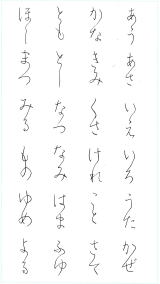 あう あさ いえ いろ うた かぜ
かな きみ くさ けれ こと さて
とも とし なつ なみ はま ふゆ
ほし まつ みる もの ゆめ よる